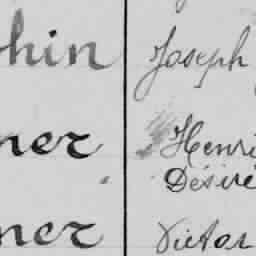 hin Joseph
ner Henri
Désiré
ner Victor